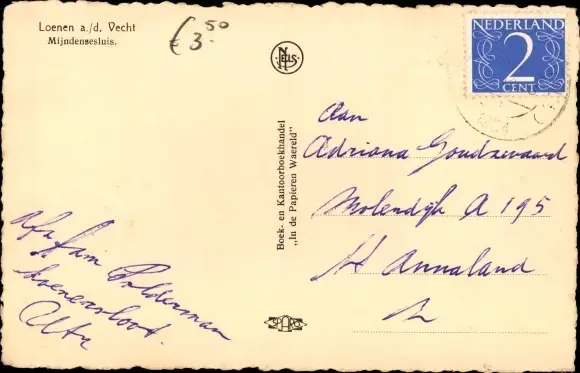 Loenen a./d. Vecht
Mijndensesluis.
€ 3.50
NELS
NEDERLAND
2
CENT
Boek- en Kantoorboekhandel
„In de Papieren Waereld"
Aan
Adriana Goudzwaard
Molendijk A 195
St Annaland
Afz fam Polderman
Loenersloot.
Utr